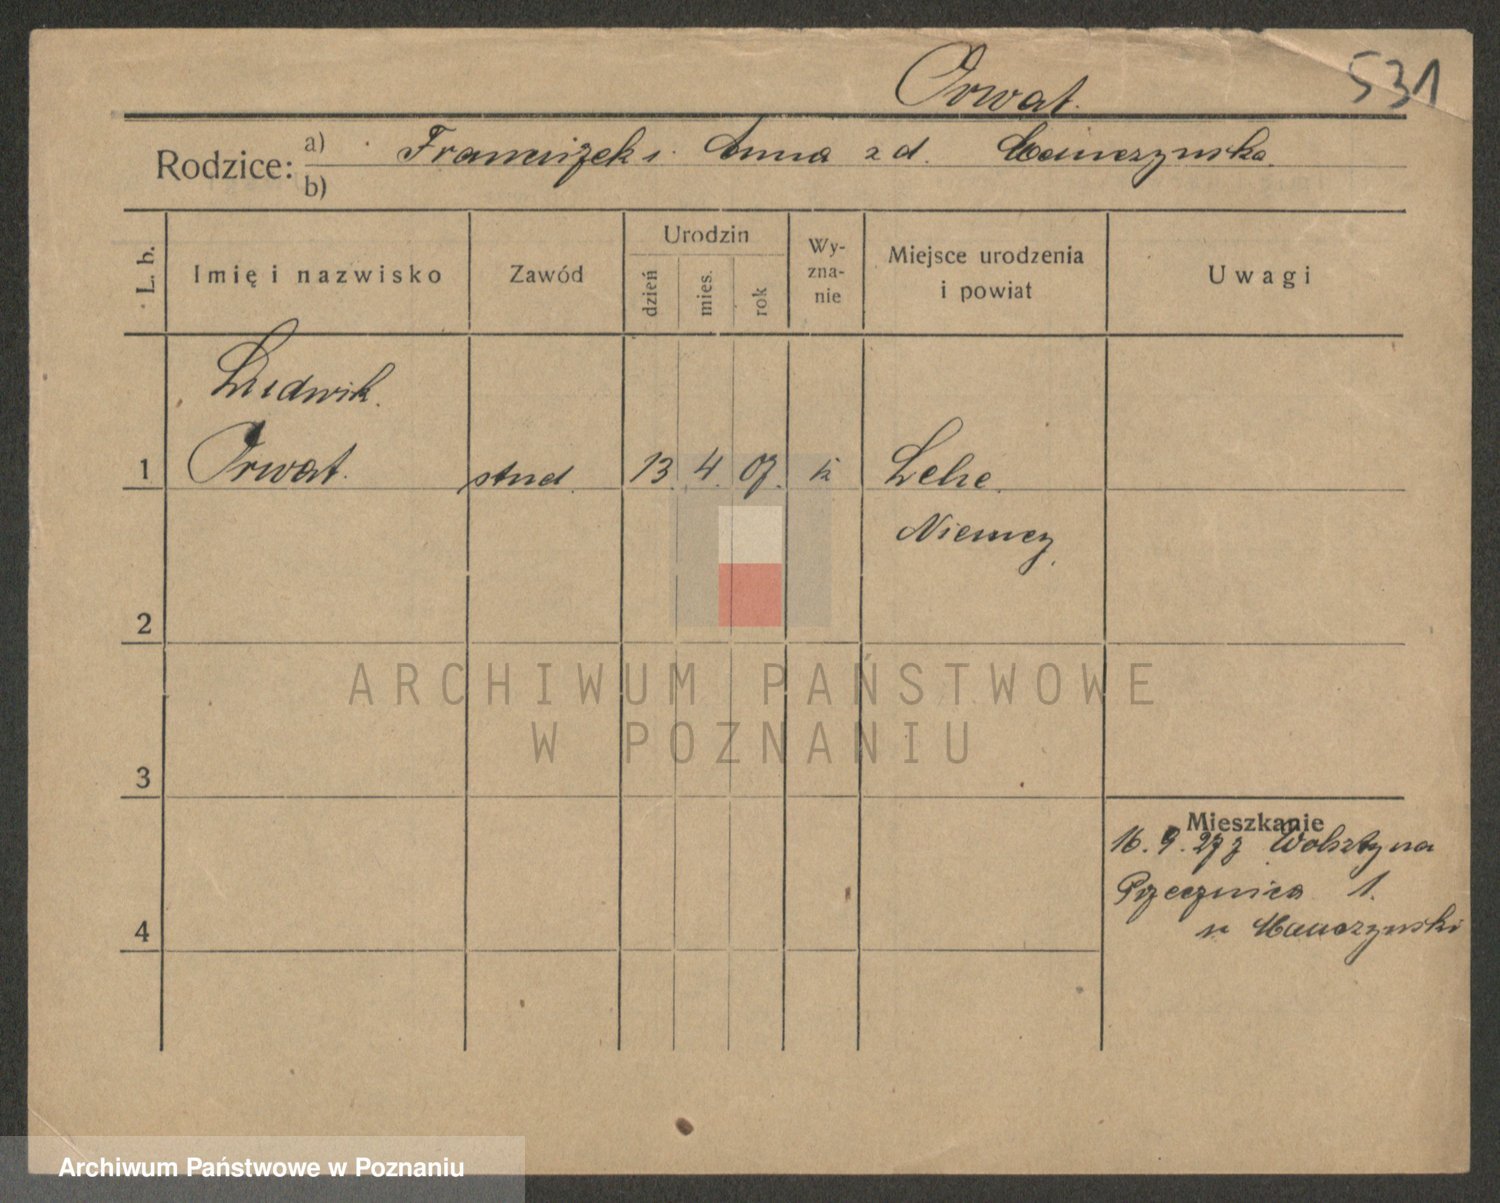 Orwat.
531
Rodzice: a) Franciszek i Anna z d.
b)
L. b.
Imię i nazwisko
Zawód
Urodzin
dzień
mies.
rok
Wy-
zna-
nie
Miejsce urodzenia
i powiat
Uwagi
Ludwik.
1 Orwat. stud. 13. 4. 07. k Lehe.
Niemcy.
2
ARCHIWUM PAŃSTWOWE
W POZNANIU
3
Mieszkanie
16. 9. 27 z Wolsztyna
Przecznica 1.
4
Archiwum Państwowe w Poznaniu